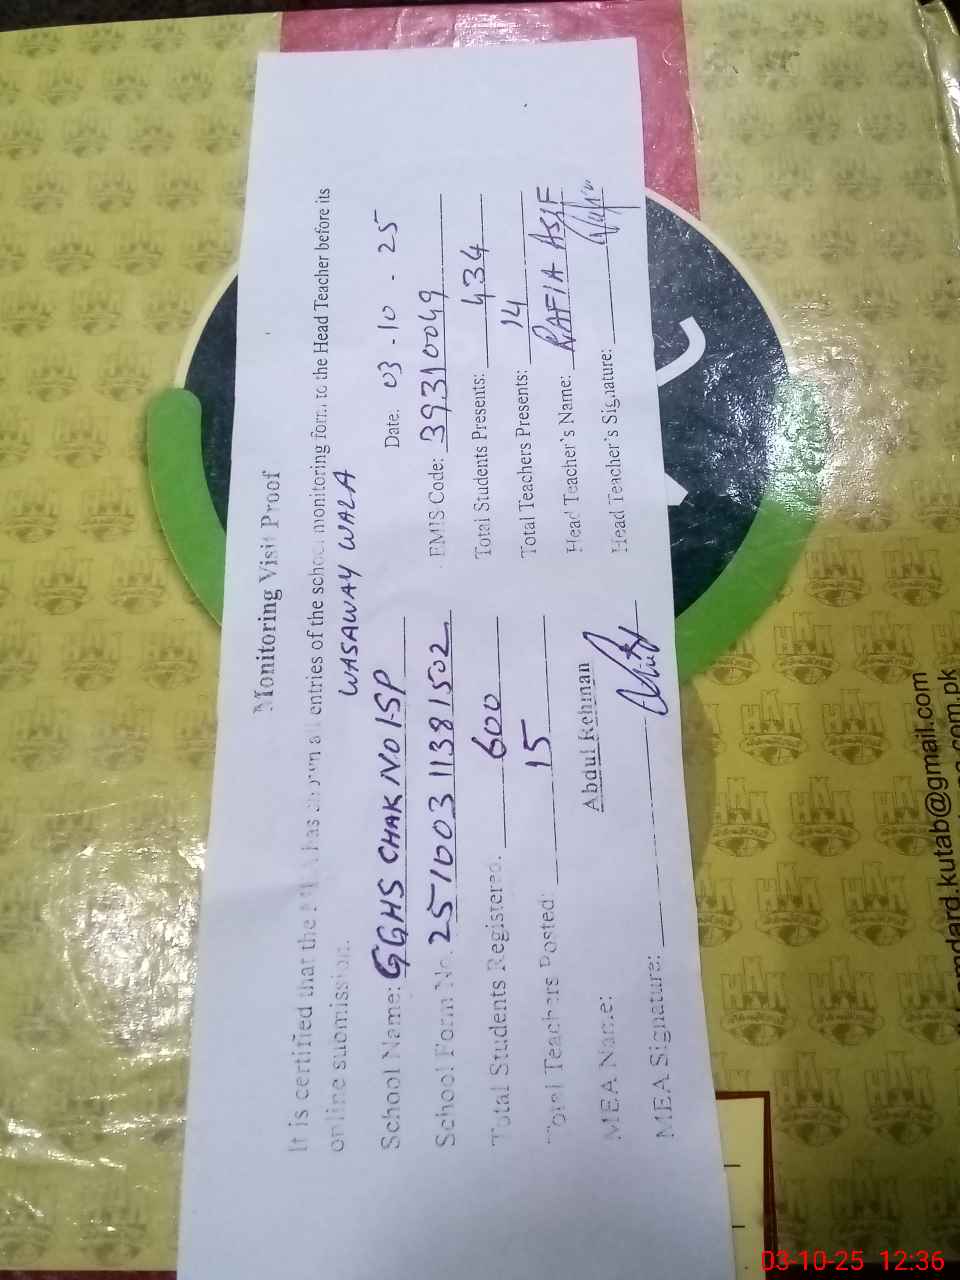 Monitoring Visit Proof
It is certified that the MEA has shown all entries of the school monitoring form to the Head Teacher before its
online submission.
WASAWAY WALA
School Name: GGHS CHAK NO 1-SP
Date. 03-10-25
School Form No. 25100311381502
EMIS Code: 39310049
Total Students Registered. 600
Total Students Presents: 434
Total Teachers Posted: 15
Total Teachers Presents: 14
MEA Name: Abdul Rehman
Head Teacher's Name: RAFIA ASIF
MEA Signature:
Head Teacher's Signature:
mdard.kutab@gmail.com
.com.pk
HAK
03-10-25 12:36